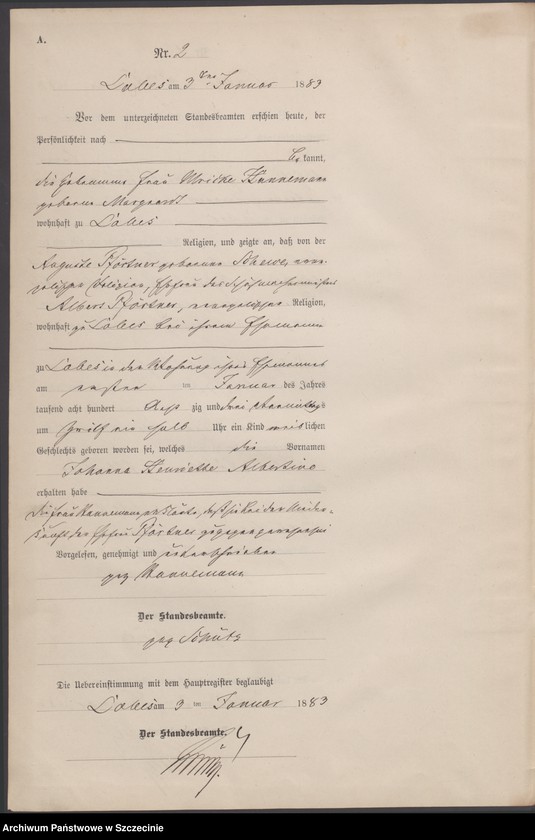 A.
Nr. 2
Labes am 3ten Januar 1883
Vor dem unterzeichneten Standesbeamten erschien heute, der
Persönlichkeit nach
bekannt,
die Hebamme Frau Ulricke Hannemann
geborne
wohnhaft zu Labes
Religion, und zeigte an, daß von der
Auguste Pförtner geborenen evan-
gelischer Religion, Ehefrau des
Albert Pförtner, evangelischer Religion,
wohnhaft zu Labes bei ihrem Ehemanne
zu Labes in der Wohnung ihres Ehemannes
am ersten im Januar des Jahres
tausend acht hundert acht zig und drei Vormittags
um zwölf ein halb Uhr ein Kind weiblichen
Geschlechts geboren worden sei, welches die Vornamen
Johanna Henriette Albertine
erhalten habe
Die Frau Hannemann erklärte, daß sie bei der Nieder-
kunft der Ehefrau Pförtner zugegen gewesen sei
Vorgelesen, genehmigt und unterschrieben
gez Hannemann
Der Standesbeamte.
gez Schütz
Die Uebereinstimmung mit dem Hauptregister beglaubigt
Labes am 3 ten Januar 1883
Der Standesbeamte.
Archiwum Państwowe w Szczecinie